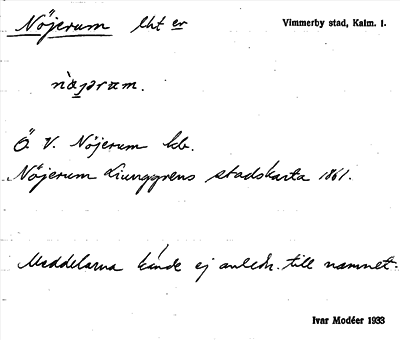 Nöjerum lht er
Vimmerby stad, Kalm. l.
Ö. V. Nöjerum kb.
Nöjerum Ljunggrens stadskarta 1861.
Meddelarna kände ej anledn. till namnet.
Ivar Modéer 1933